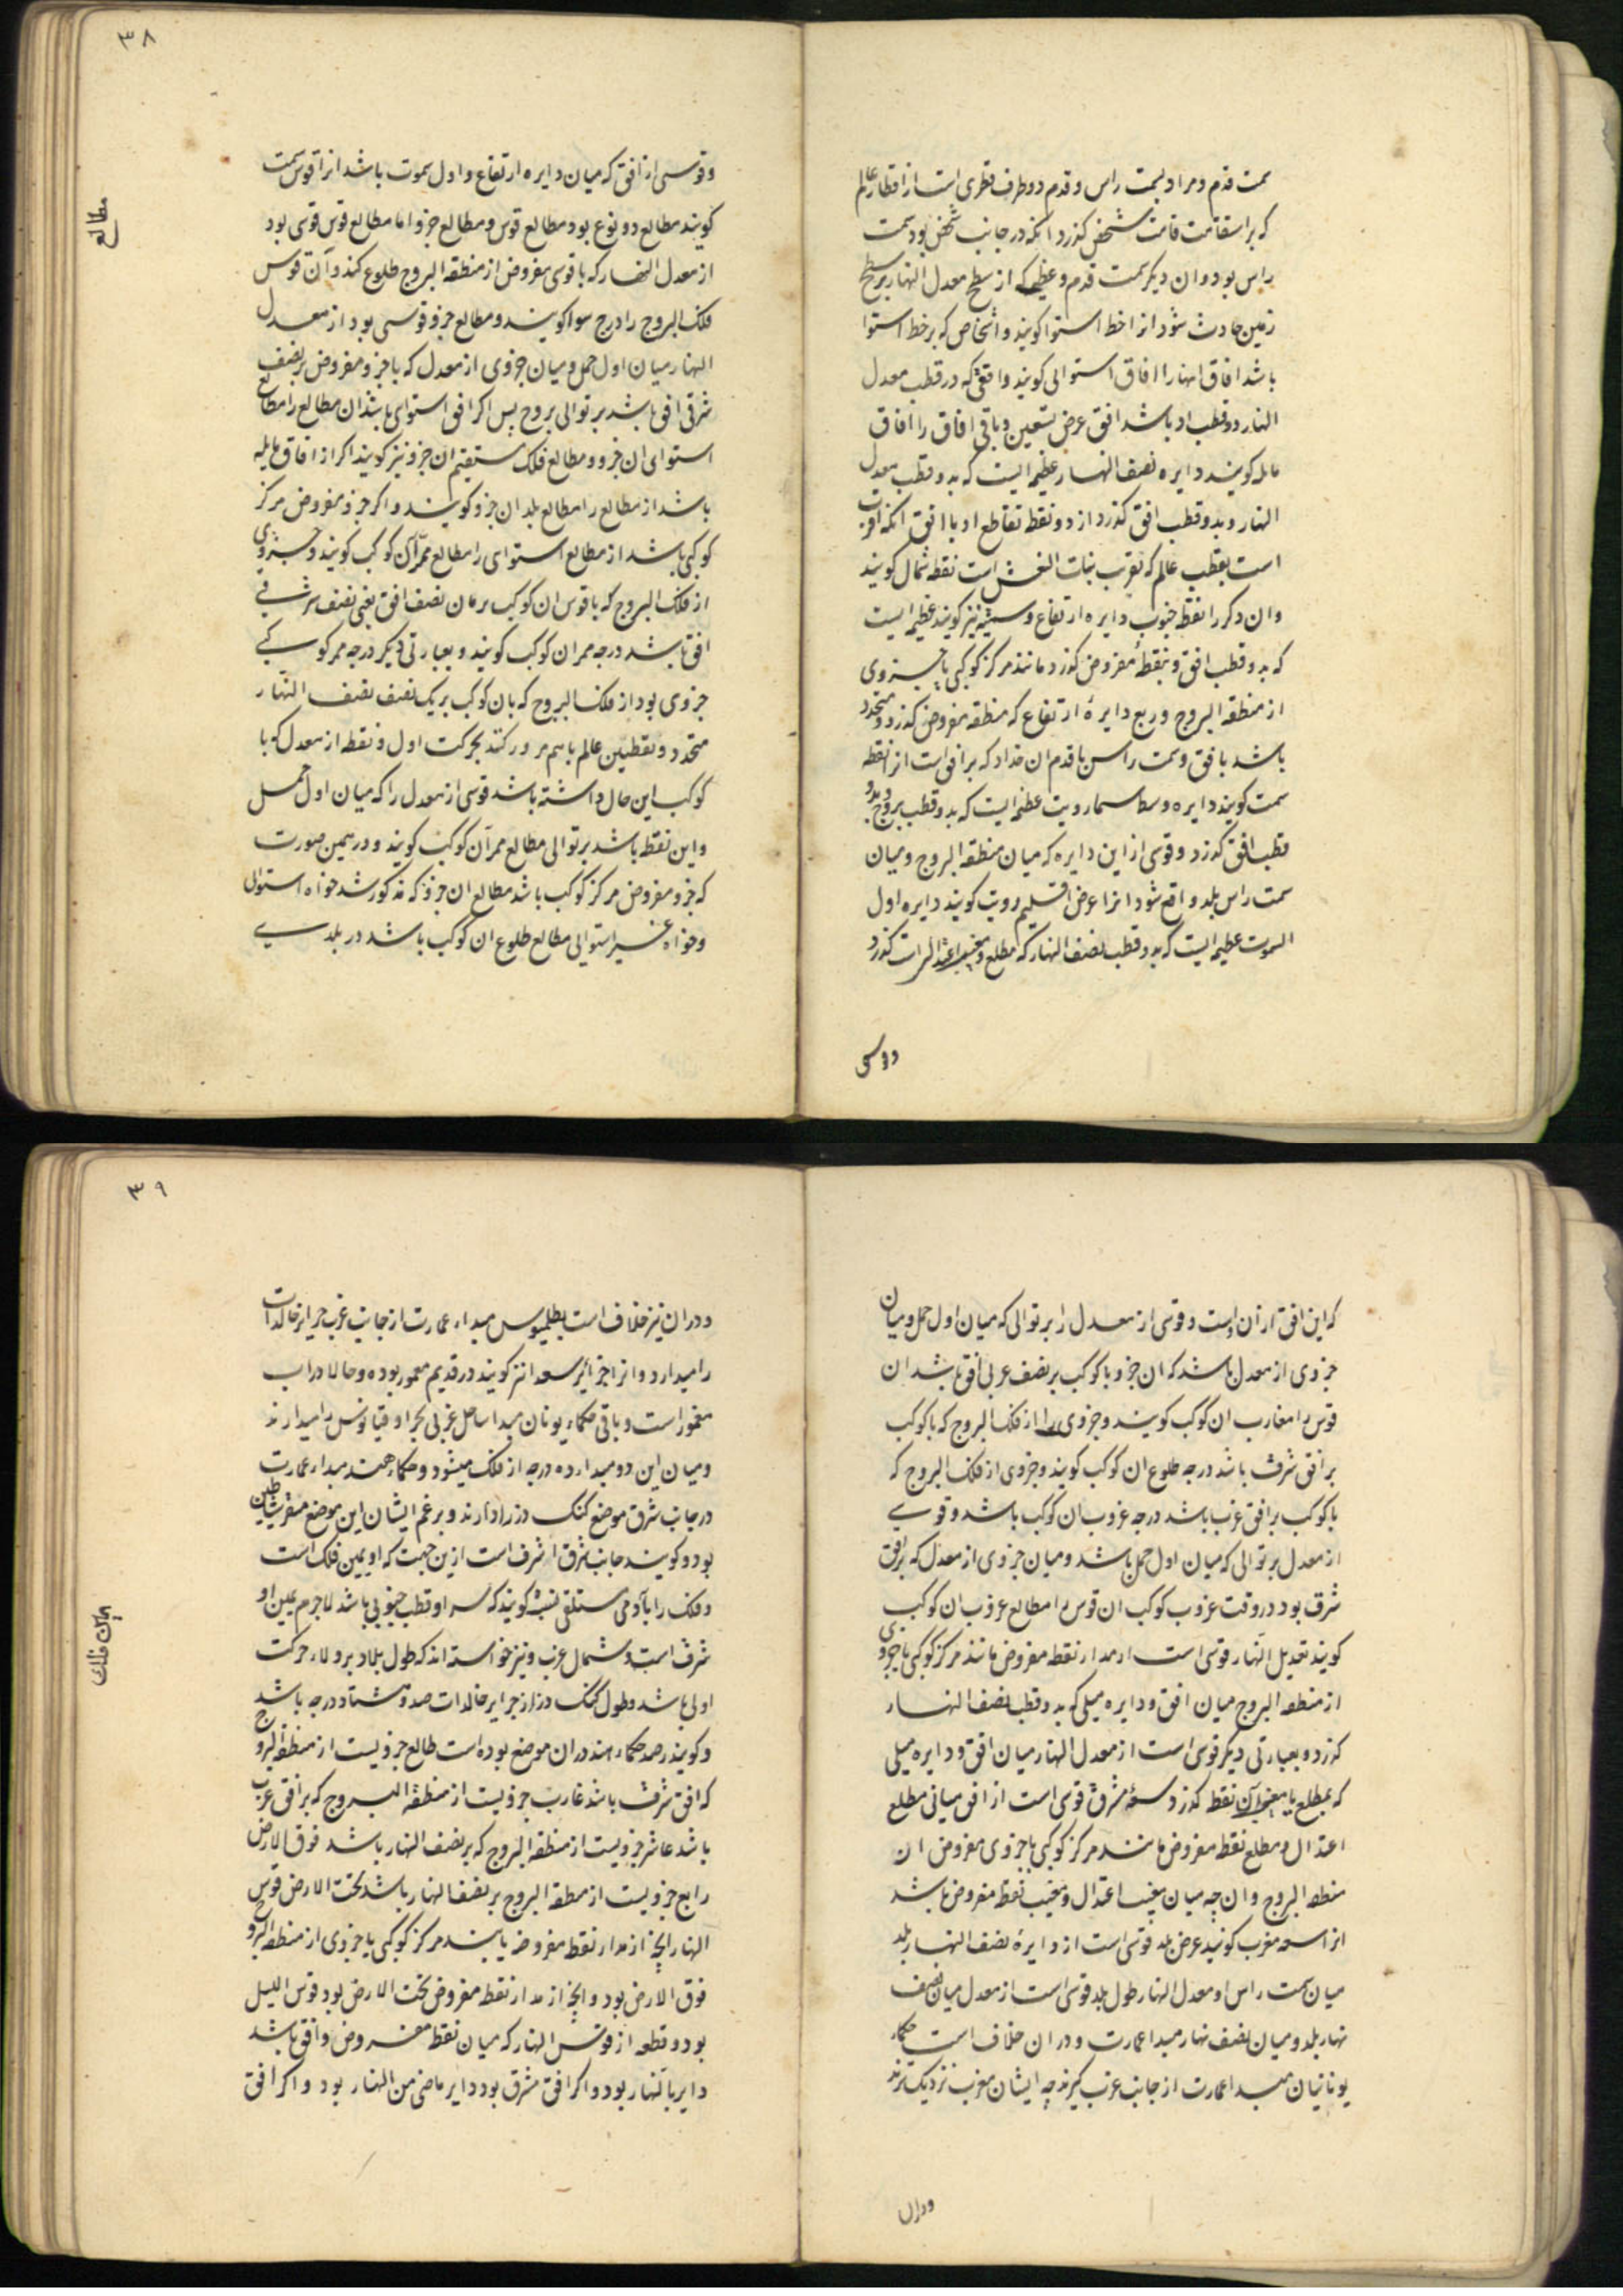 سمت قدم و مراد بسمت راس و قدم دو طرف قطری است از اقطار عالم
که بر استقامت قامت شخص گذرد آنکه در جانب شخص بود سمت
راس بود و ان دیکر سمت قدم و عظیمه که از سطح معدل النهار بر سطح
زمین حادث شود انرا خط استوا کویند و اشخاص که بر خط استوا
باشد افاق انها را افاق استوائی کویند وافقی که در قطب معدل
النهار دو قطب او باشد افق عرض تسعین و باقی افاق را افاق
مایله کویند دایره نصف النهار عظیمه ایست که بدو قطب معدل
النهار و بدو قطب افق کذرد از دو نقطه تقاطع او با افق آنکه اقرب
است بقطب عالم که بقرب بنات النعش است نقطه شمال کویند
وان دکر را نقطه جنوب دایره ارتفاع و سمتیه نیز کویند عظیمه ایست
که بدو قطب افق و بنقطهٔ مفروض کذرد مانند مرکز کوکبی یا جزوی
از منطقه البروج و ربع دایرهٔ ارتفاع که منطقه مفروض کذرد و متحدد
باشد بافق و سمت راس یا قدم ان مقدار که بر افق است انرا نقطه
سمت کویند دایره وسط سماء رویت عظیمه ایست که بدو قطب بروج و بدو
قطب افق کذرد و قوسی از این دایره که میان منطقه البروج و میان
سمت راس بلد واقع شود انرا عرض اقلیم رویت کویند دایره اول
السموت عظیمه ایست که بدو قطب نصف النهار که مطلع و مغیب اعتدال است کذرد
وقوسی
۳۸
وقوسی از افق که میان دایره ارتفاع و اول سموت باشد انرا قوس سمت
کویند مطالع دو نوع بود مطالع قوس و مطالع جزو اما مطالع قوس قوسی بود
مطالع
از معدل النهار که با قوسی مفروض از منطقه البروج طلوع کند و آن قوس
فلک البروج را درج سوا کویند و مطالع جزو قوسی بود از معدل
النهار میان اول حمل و میان جزوی از معدل که با جزو مفروض بر نصف
شرقی افق باشد بر توالی بروج پس اکر افق استوای باشد ان مطالع را مطالع
استوای ان جزو و مطالع فلک مستقیم ان جزو نیز کویند اکر از افاق مایله
باشد از مطالع را مطالع بلد ان جزو کویند و اکر جزو مفروض مرکز
کوکبی باشد از مطالع استوای را مطالع ممر آن کوکب کویند و جزوی
از فلک البروج که با قوس ان کوکب بر مان نصف افق یعنی نصف شرقی
افق باشد درجه ممر ان کوکب کویند و بعبارتی دیکر درجه ممر کوکبی
جزوی بود از فلک البروج که بان کوکب بر یک نصف نصف النهار
متحدد و بقطبین عالم باهم مرور کنند بحرکت اول و نقطه از معدل که با
کوکب این حال داشته باشد قوسی از معدل را که میان اول حمل
و این نقطه باشد بر توالی مطالع ممر آن کوکب کویند و در همین صورت
که جزو مفروض مرکز کوکب باشد مطالع ان جزو که مذکور شد خواه استوائی
وخواه غیر استوائی مطالع طلوع ان کوکب باشد در بلدی
که این افق از آن است و قوسی از معدل را بر توالی که میان اول حمل و میان
جزوی از معدل باشد که ان جزو با کوکب بر نصف غربی افق باشد ان
قوس را مغارب ان کوکب کویند و جزوی را از فلک البروج که با کوکب
بر افق شرق باشد درجه طلوع ان کوکب کویند و جزوی از فلک البروج که
با کوکب بر افق غرب باشد درجه غروب ان کوکب باشد و قوسی
از معدل بر توالی که میان اول حمل باشد و میان جزوی از معدل که بر افق
شرق بود در وقت غروب کوکب ان قوس را مطالع غروب ان کوکب
کویند تعدیل النهار قوسی است از مدار نقطه مفروض مانند مرکز کوکبی یا جزوی
از منطقه البروج میان افق و دایره میلی که بدو قطب نصف النهار
کذرد و بعبارتی دیکر قوسی است از معدل النهار میان افق و دایره میلی
که بمطلع یا مغیب آن نقطه کذرد و سعهٔ مشرق قوسی است از افق میانی مطلع
اعتدال و مطلع نقطه مفروض مانند مرکز کوکبی یا جزوی مفروض ان
منطقه البروج و ان چه میان مغیب اعتدال و مغیب نقطه مفروض باشد
انرا سعه مغرب کویند عرض بلد قوسی است از دایرهٔ نصف النهار بلد
میان سمت راس او معدل النهار طول بلد قوسی است از معدل میان نصف
نهار بلد و میان نصف نهار مبدا عمارت و دران خلاف است حکماء
یونانیان مبدا عمارت از جانب غرب کیرند چه ایشان مغرب نزدیکترند
ودران
۳۹
ودران نیز خلاف است بطلیموس مبداء عمارت از جانب غرب جزایر خالدات
را میدارد و انرا جزایر سعدا نیز کویند در قدیم معمور بوده و حالا در اب
مغمور است و باقی حکماء یونان مبدا ساحل غربی بحر اوقیانوس را میدارند
ومیان این دو مبدا ده درجه از فلک میشود و حکماء هند مبداء عمارت
در جانب شرق موضع کنک دز را دارند و برغم ایشان این موضع مستقر شیاطین
بود و کویند جانب شرق اشرف است از ین جهت که او یمین فلک است
و فلک را بآدمی مستلقی تشبیه کویند که سر او قطب جنوبی باشد لاجرم یمین او
میان فلک
شرق است و شمال غرب و نیز خواسته اند که طول بلاد بر ولاء حرکت
اولی باشد و طول کنک دز از جزایر خالدات صد و هشتاد درجه باشد
و کویند رصد حکماء هند در ان موضع بوده است طالع جزویست از منطقه البروج
که افق شرق باشد غارب جزویست از منطقه البروج که بر افق غرب
باشد عاشر جزویست از منطقه البروج که بر نصف النهار باشد فوق الارض
رابع جزویست از منطقه البروج بر نصف النهار باشد تحت الارض قوس
النهار آنچه از مدار نقطه مفروضه یا بند مرکز کوکبی یا جزوی از منطقه البروج
فوق الارض بود و آنچه از مدار نقطه مفروض تحت الارض بود قوس اللیل
بود و قطعه از قوس النهار که میان نقطه مفروض و افق باشد
دایر بالنهار بود و اکر افق مشرق بود دایر ماضی من النهار بود و اکر افق